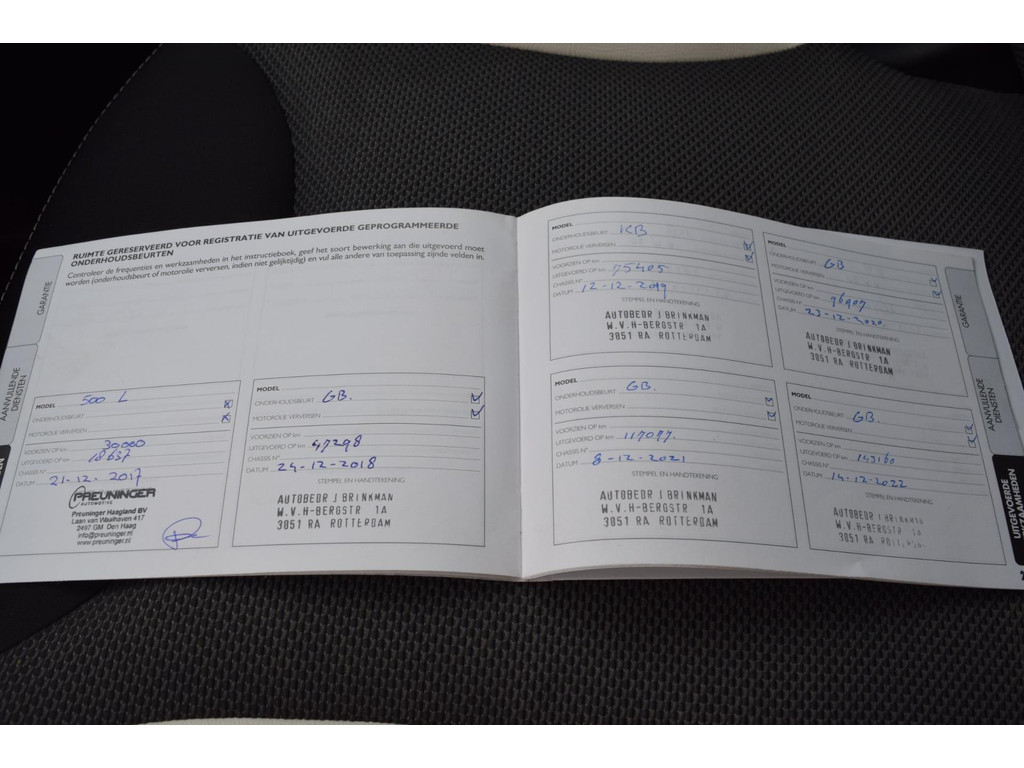 RUIMTE GERESERVEERD VOOR REGISTRATIE VAN UITGEVOERDE GEPROGRAMMEERDE
ONDERHOUDSBEURTEN
Controleer de frequenties en werkzaamheden in het instructieboek, geef het soort bewerking aan die uitgevoerd moet
worden (onderhoudsbeurt of motorolie verversen, indien niet gelijktijdig) en vul alle andere van toepassing zijnde velden in.
GARANTIE
AANVULLENDE
DIENSTEN
MODEL 500 L
ONDERHOUDSBEURT
MOTOROLIE VERVERSEN
VOORZIEN OP km 30000
UITGEVOERD OP km 18637
CHASSIS N°
DATUM 21-12-2017
PREUNINGER
AUTOMOTIVE
Preuninger Haagland BV
Laan van Waalhaven 417
2497 GM Den Haag
info@preuninger.nl
www.preuninger.nl
MODEL
ONDERHOUDSBEURT GB.
MOTOROLIE VERVERSEN
VOORZIEN OP km
UITGEVOERD OP km 47298
CHASSIS N°
DATUM 24-12-2018
STEMPEL EN HANDTEKENING
AUTOBEDR J BRINKMAN
W.V.H-BERGSTR 1A
3051 RA ROTTERDAM
MODEL
ONDERHOUDSBEURT KB
MOTOROLIE VERVERSEN
VOORZIEN OP km
UITGEVOERD OP km 75405
CHASSIS N°
DATUM 12-12-2019
STEMPEL EN HANDTEKENING
AUTOBEDR J BRINKMAN
W.V.H-BERGSTR 1A
3051 RA ROTTERDAM
MODEL
ONDERHOUDSBEURT GB
MOTOROLIE VERVERSEN
VOORZIEN OP km
UITGEVOERD OP km 96907
CHASSIS N°
DATUM 23-12-2020
STEMPEL EN HANDTEKENING
AUTOBEDR J BRINKMAN
W.V.H-BERGSTR 1A
3051 RA ROTTERDAM
MODEL
ONDERHOUDSBEURT GB.
MOTOROLIE VERVERSEN
VOORZIEN OP km
UITGEVOERD OP km 117077.
CHASSIS N°
DATUM 8-12-2021
STEMPEL EN HANDTEKENING
AUTOBEDR J BRINKMAN
W.V.H-BERGSTR 1A
3051 RA ROTTERDAM
MODEL
ONDERHOUDSBEURT GB.
MOTOROLIE VERVERSEN
VOORZIEN OP km
UITGEVOERD OP km 143160
CHASSIS N°
DATUM 14-12-2022
STEMPEL EN HANDTEKENING
AUTOBEDR J BRINKMAN
W.V.H-BERGSTR 1A
3051 RA
GARANTIE
AANVULLENDE
DIENSTEN
UITGEVOERDE